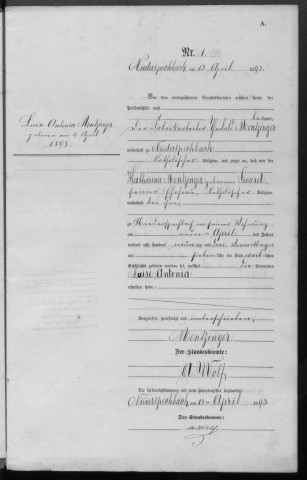 A.
Nr. 1.
Niederspechbach am 13 April 1893.
Vor dem unterzeichneten Standesbeamten erschien heute, der
Persönlichkeit nach
kannt,
der Fabrikarbeiter Theobald Mentzinger
Luise Antonia Mentzinger
geboren am 9 April
1893.
wohnhaft zu Niederspechbach
katholischer Religion, und zeigte an, daß von der
Katharina Mentzinger geborenen
seiner Ehefrau, katholischer Religion,
wohnhaft bei ihm,
zu Niederspechbach in seiner Wohnung
am neun April des Jahres
tausend acht hundert neunzig und drei Vormittags
um sieben Uhr ein Kind weiblichen
Geschlechts geboren worden sei, welches die Vornamen
Luise Antonia
erhalten habe.
Vorgelesen, genehmigt und unterschrieben,
Mentzinger
Der Standesbeamte:
A Wolf
Die Uebereinstimmung mit dem Hauptregister beglaubigt
Niederspechbach am 13 April 1893.
Der Standesbeamte:
A. Wolf